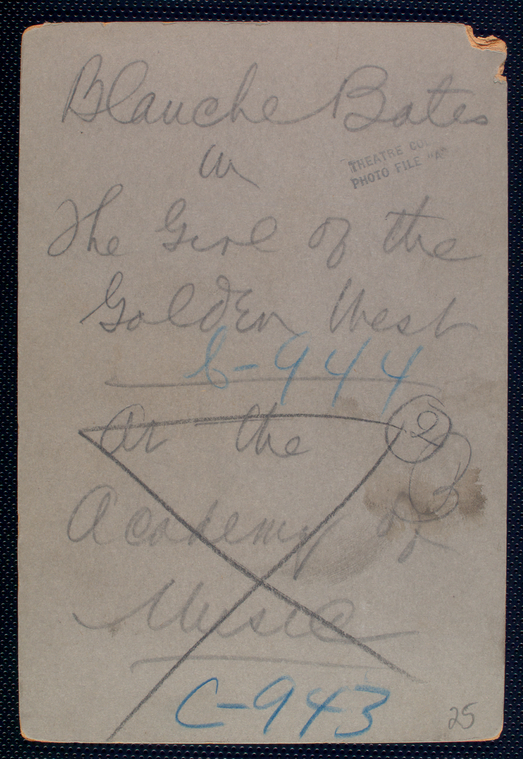 Blanche Bates
in
THEATRE
PHOTO FILE "A"
The Girl of the
Golden West
C-944
At the
2
B
Academy of
Music
C-943
25